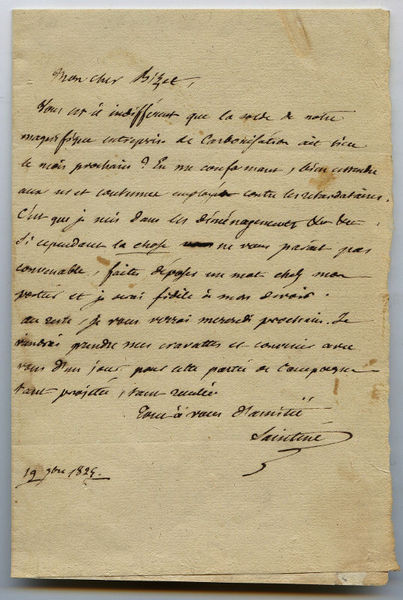 Mon cher Bizet,
Vous est il indifférent que la solde de notre
magnifique entreprise de Carbonisation ait lieu
le mois prochain? En me conformant, bien entendu
aux us et coutumes employés contre les retardataires.
C'est que je suis dans les déménagements
Si cependant la chose ne vous paraît pas
convenable, faites déposer un mot chez mon
portier et je serai fidèle à mon devoir.
au reste, je vous verrai mercredi prochain. Je
viendrai prendre mes cravattes et convenir avec
vous d'un jour pour cette partie de Campagne
tant projettée, tant reculée
Tout à vous d'amitié
Saintine
19 9bre 1825.